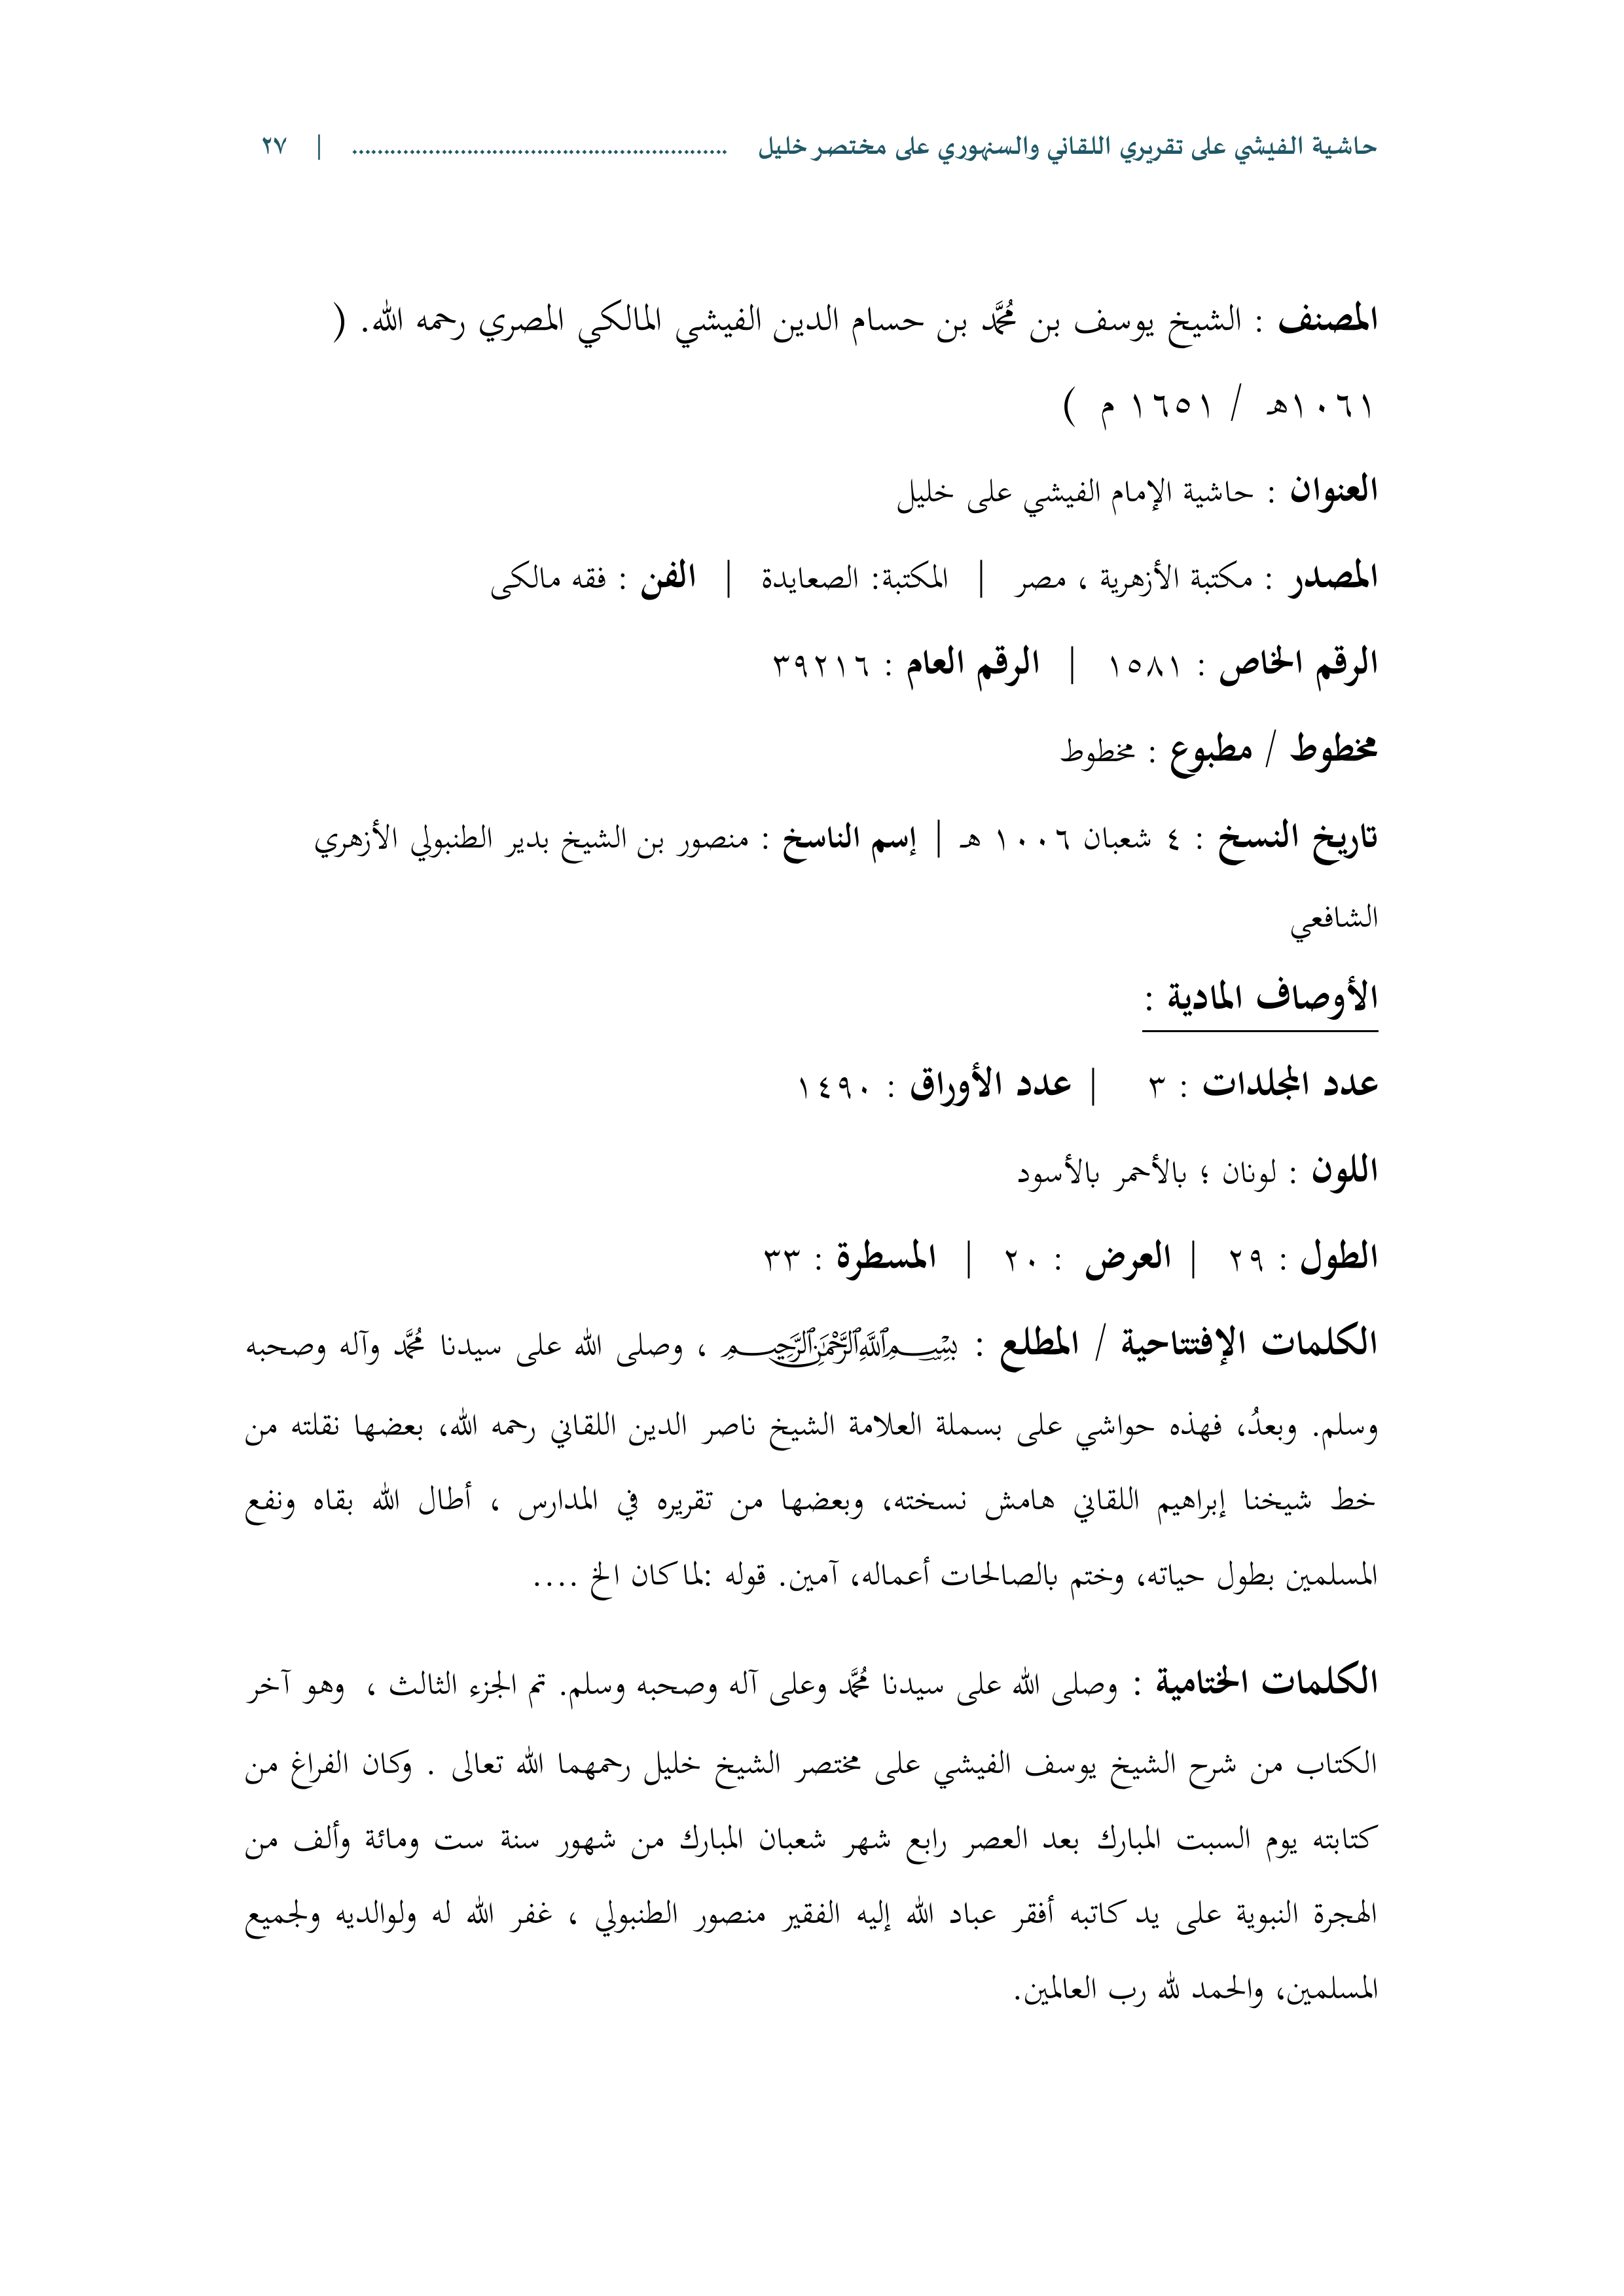 حاشية الفيشي على تقريري اللقاني والسنهوري على مختصر خليل ........................................................... | ٢٧
المصنف : الشيخ يوسف بن مُحَمَّد بن حسام الدين الفيشي المالكي المصري رحمه الله. (
١٠٦١هـ / ١٦٥١ م )
العنوان : حاشية الإمام الفيشي على خليل
المصدر : مكتبة الأزهرية ، مصر | المكتبة: الصعايدة | الفن : فقه مالكى
الرقم الخاص : ١٥٨١ | الرقم العام : ٣٩٢١٦
مخطوط / مطبوع : مخطوط
تاريخ النسخ : ٤ شعبان ١٠٠٦ هـ | إسم الناسخ : منصور بن الشيخ بدير الطنبولي الأزهري
الشافعي
الأوصاف المادية :
عدد المجلدات : ٣ | عدد الأوراق : ١٤٩٠
اللون : لونان ؛ بالأحمر بالأسود
الطول : ٢٩ | العرض : ٢٠ | المسطرة : ٣٣
الكلمات الإفتتاحية / المطلع : ﷽ ، وصلى الله على سيدنا مُحَمَّد وآله وصحبه
وسلم. وبعدُ، فهذه حواشي على بسملة العلامة الشيخ ناصر الدين اللقاني رحمه الله، بعضها نقلته من
خط شيخنا إبراهيم اللقاني هامش نسخته، وبعضها من تقريره في المدارس ، أطال الله بقاه ونفع
المسلمين بطول حياته، وختم بالصالحات أعماله، آمين. قوله :لما كان الخ ....
الكلمات الختامية : وصلى الله على سيدنا مُحَمَّد وعلى آله وصحبه وسلم. تم الجزء الثالث ، وهو آخر
الكتاب من شرح الشيخ يوسف الفيشي على مختصر الشيخ خليل رحمهما الله تعالى . وكان الفراغ من
كتابته يوم السبت المبارك بعد العصر رابع شهر شعبان المبارك من شهور سنة ست ومائة وألف من
الهجرة النبوية على يد كاتبه أفقر عباد الله إليه الفقير منصور الطنبولي ، غفر الله له ولوالديه ولجميع
المسلمين، والحمد لله رب العالمين.